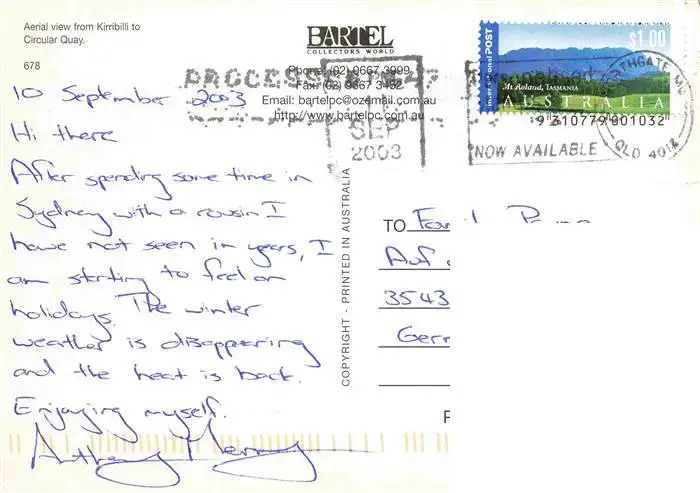 Aerial view from Kirribilli to
Circular Quay.
678
BARTEL
COLLECTORS WORLD
Phone: (02) 9667 3999
Email: bartelpc@ozemail.com.au
http://www.bartelpc.com.au
SEP
2003
International POST
$1.00
Mt Roland, TASMANIA
AUSTRALIA
9 310779 001032
NOW AVAILABLE
NORTHGATE MC
QLD 4013
10 September 2003
Hi there
After spending some time in
Sydney with a cousin I
have not seen in years, I
am starting to feel on
holidays. The winter
weather is disappearing
and the heat is back.
Enjoying myself.
Anthony
COPYRIGHT - PRINTED IN AUSTRALIA
TO
Auf
3543
Germ
P